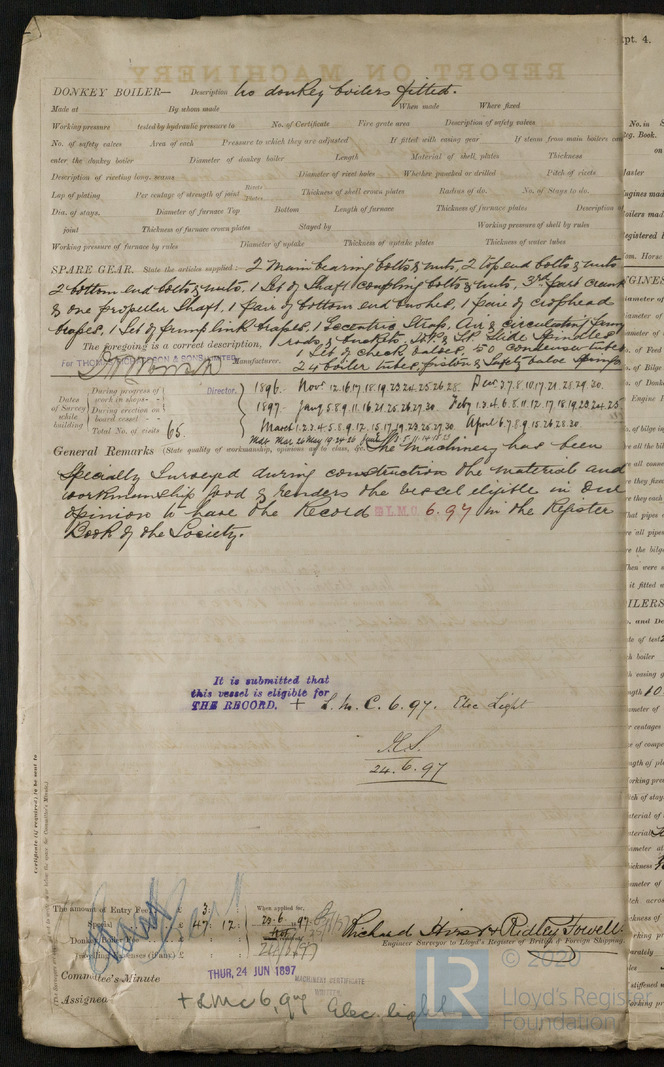 REPORT ON MACHINERY
pt. 4.
DONKEY BOILER— Description No donkey boilers fitted.
Made at By whom made When made Where fixed
Working pressure tested by hydraulic pressure to No. of Certificate Fire grate area Description of safety valves
No. of safety valves Area of each Pressure to which they are adjusted If fitted with easing gear If steam from main boilers can
enter the donkey boiler Diameter of donkey boiler Length Material of shell plates Thickness
Description of riveting long. seams Diameter of rivet holes Whether punched or drilled Pitch of rivets
Lap of plating Per centage of strength of joint Rivets Plates Thickness of shell crown plates Radius of do. No. of Stays to do.
Dia. of stays. Diameter of furnace Top Bottom Length of furnace Thickness of furnace plates Description of
joint Thickness of furnace crown plates Stayed by Working pressure of shell by rules
Working pressure of furnace by rules Diameter of uptake Thickness of uptake plates Thickness of water tubes
SPARE GEAR. State the articles supplied:— 2 Main bearing bolts & nuts, 2 top end bolts & nuts
2 bottom end bolts & nuts, 1 Set of Shaft coupling bolts & nuts, 3rd part crank
& one propeller Shaft, 1 pair of bottom end bushes, 1 pair of crosshead
brasses, 1 Set of pump link brasses, 1 Eccentric Strap, Air & circulating pump
rods & buckets, H.P. & L.P. Slide Spindles
The foregoing is a correct description,
1 Set of check valves, 50 condenser tubes
24 boiler tubes, piston & Safety valve springs
For THOMAS MORRISON & SONS LIMITED Manufacturer.
Director.
Dates of Survey while building
During progress of work in shops - -
During erection on board vessel - - -
Total No. of visits 65.
1896. Nov. 12.16.17.18.19.23.24.25.26.28. Dec. 3.7.8.10.17.21.28.29.30.
1897. Jany 5.8.9.11.16.21.25.26.27.30. Feby 1.3.4.6.8.11.12.17.18.19.23.24.25
March 1.2.3.4.5.8.9.12.15.16.17.19.23.25.26.27.30 April 6.7.8.9.15.26.28.30.
General Remarks (State quality of workmanship, opinions as to class, &c. The machinery has been
Specially Surveyed during construction the material and
workmanship good & renders the vessel eligible in our
opinion to have the Record L.M.C. 6.97 in the Register
Book of the Society.
It is submitted that
this vessel is eligible for
THE RECORD. + L.M.C. 6.97. Elec Light
24.6.97
Certificate (if required) to be sent to
The amount of Entry Fee £ 3. When applied for,
Special £ 47. 12. 23.6.97
Donkey Boiler Fee £
Travelling Expenses (if any) £
Richard Hirst & Ridley Towell.
Engineer Surveyor to Lloyd's Register of British & Foreign Shipping.
Committee's Minute THUR, 24 JUN 1897
MACHINERY CERTIFICATE
WRITTEN.
Assigned + LMC 6,97 Elec. light
LR © 2020
Lloyd's Register
Foundation